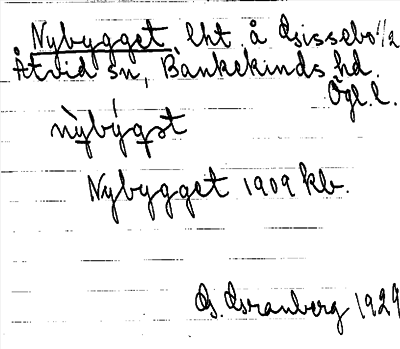 Nybygget, lht å Gissebo 1/2
Åtvid sn, Bankekinds hd.
Ögl. l.
Nybygget 1909 kb.
G. Granberg 1929